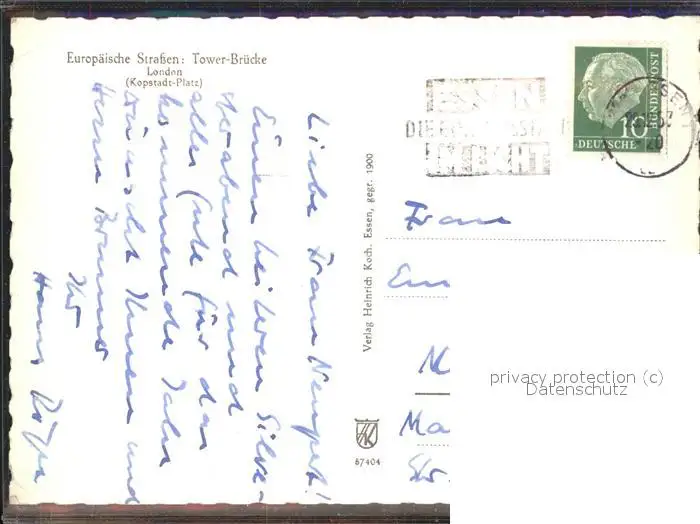 Europäische Straßen: Tower-Brücke
London
(Kopstadt-Platz)
Liebe Frau
Einen heiteren Silve-
sterabend und
alles Gute für das
kommende Jahr
wünscht Ihnen und
Herrn
Ihr
Hans
Verlag Heinrich Koch, Essen, gegr. 1900
HK
67404
ESSEN
DIE
10
DEUTSCHE
BUNDESPOST
ESSEN 1
20
Frau
privacy protection (c)
Datenschutz
Ma
Str